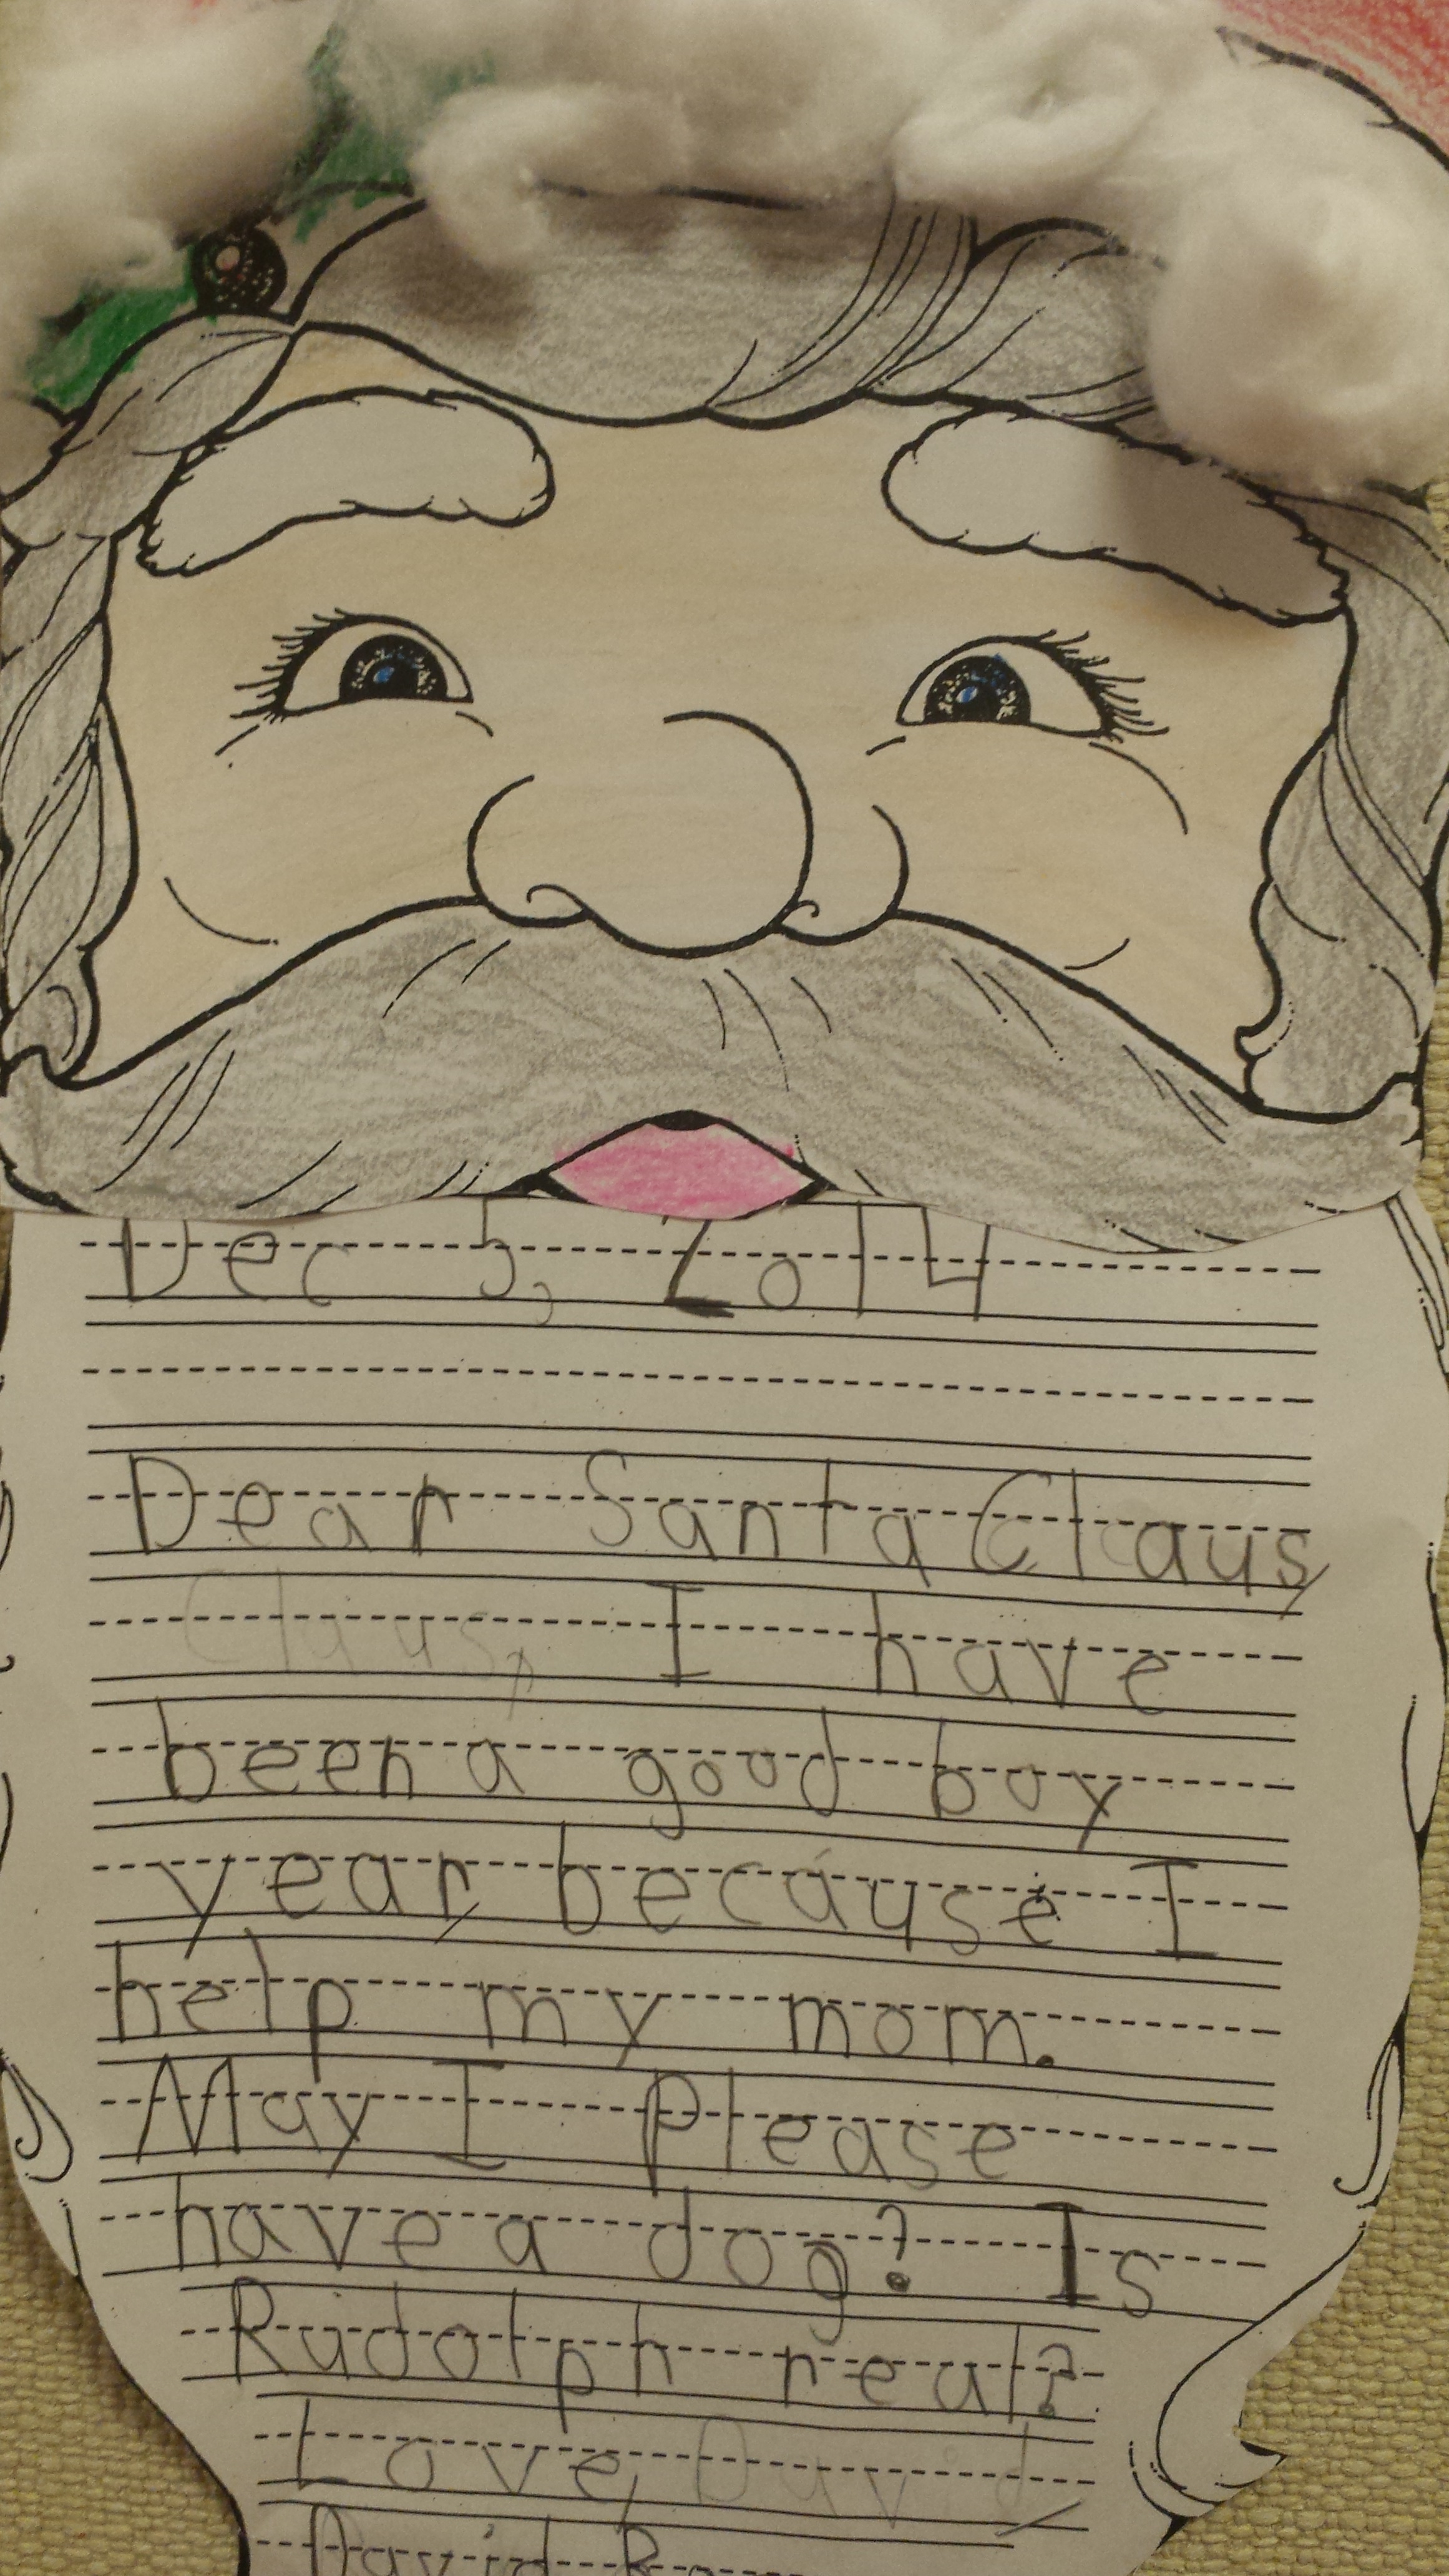 Dec 5, 2014
Dear Santa Claus,
Claus, I have
been a good boy
year, because I
help my mom.
May I Please
have a dog? Is
Rudolph real?
Love, David
David